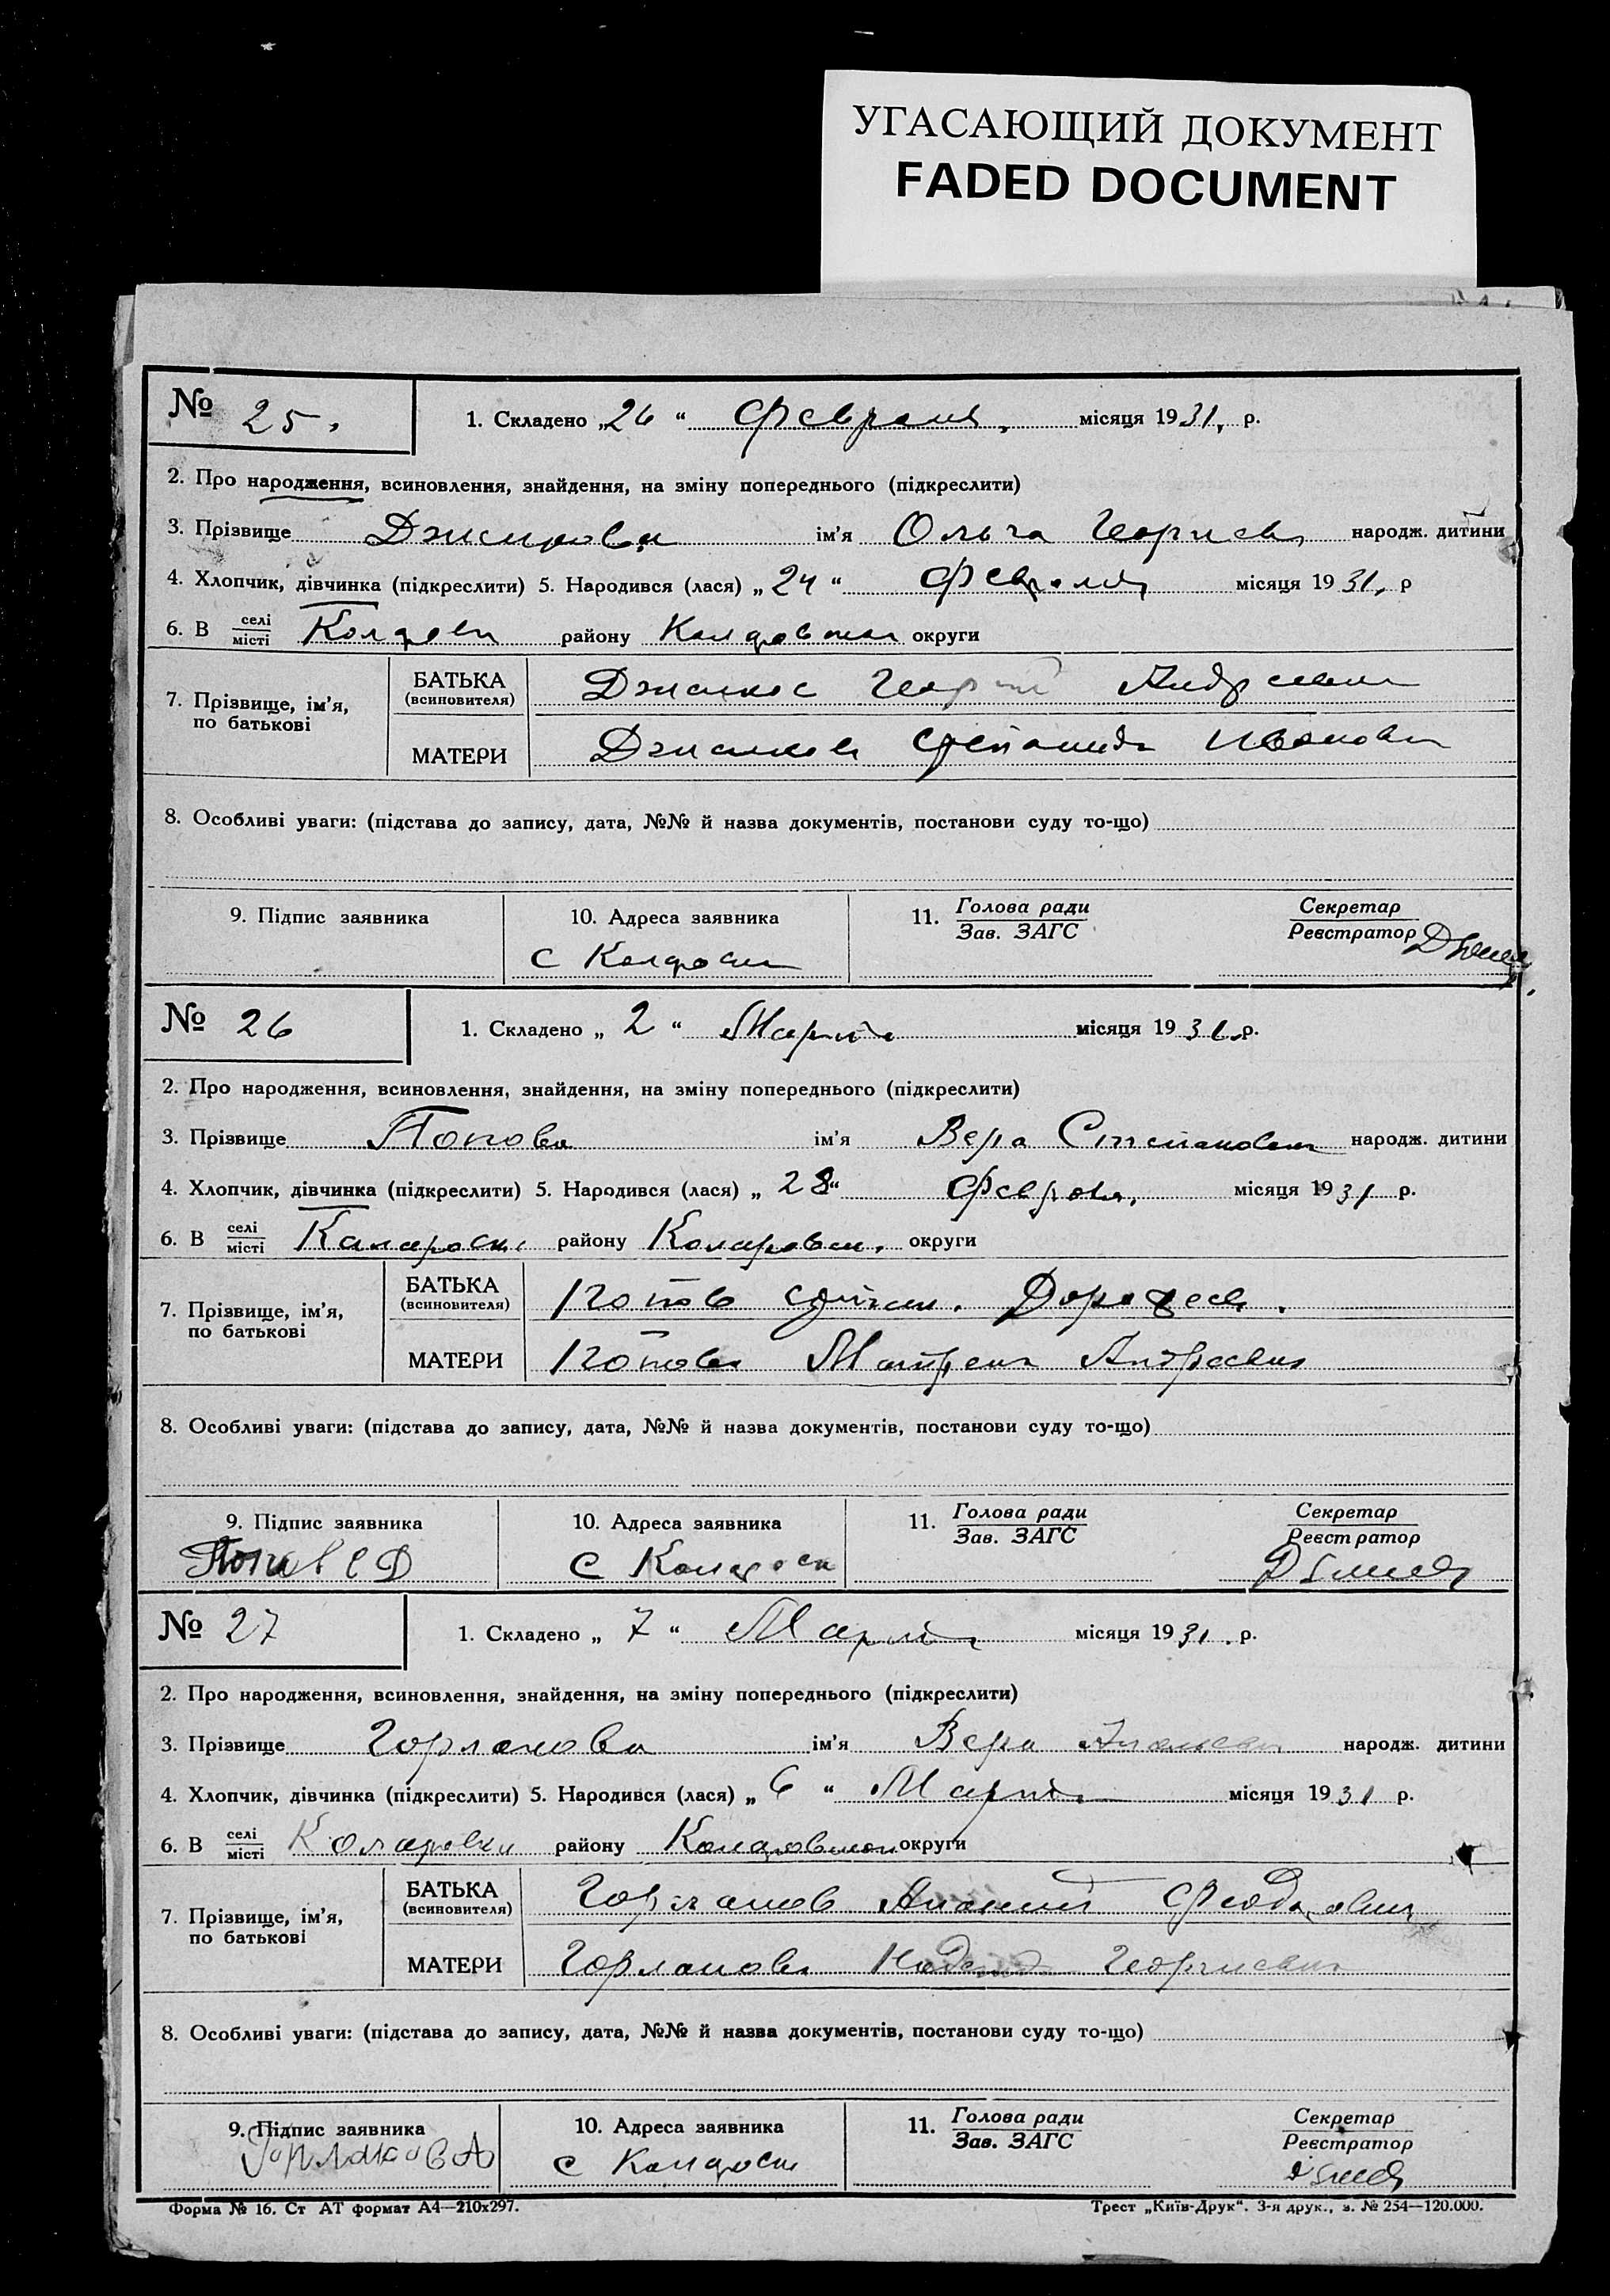 УГАСАЮЩИЙ ДОКУМЕНТ
FADED DOCUMENT
№ 25. 1. Складено „26“ Февраля, місяця 1931, р.
2. Про народження, всиновлення, знайдення, на зміну попереднього (підкреслити)
3. Прізвище ім'я Ольга народж. дитини
4. Хлопчик, дівчинка (підкреслити) 5. Народився (лася) „24“ Февраля місяця 1931, р
6. В селі місті району округи
7. Прізвище, ім'я, по батькові
БАТЬКА (всиновителя) Георгий
МАТЕРИ
8. Особливі уваги: (підстава до запису, дата, №№ й назва документів, постанови суду то-що)
9. Підпис заявника 10. Адреса заявника 11. Голова ради Зав. ЗАГС Секретар Реєстратор
с
№ 26 1. Складено „2“ Марта місяця 1931 р.
2. Про народження, всиновлення, знайдення, на зміну попереднього (підкреслити)
3. Прізвище Попова ім'я Вера Степановна народж. дитини
4. Хлопчик, дівчинка (підкреслити) 5. Народився (лася) „28“ Февраля, місяця 1931 р.
6. В селі місті району Коларовск. округи
7. Прізвище, ім'я, по батькові
БАТЬКА (всиновителя) Попов Степан. Дорофеев.
МАТЕРИ Попова Матрена Андреевна
8. Особливі уваги: (підстава до запису, дата, №№ й назва документів, постанови суду то-що)
9. Підпис заявника 10. Адреса заявника 11. Голова ради Зав. ЗАГС Секретар Реєстратор
Попов С Д с
№ 27 1. Складено „7“ Марта місяця 1931 р.
2. Про народження, всиновлення, знайдення, на зміну попереднього (підкреслити)
3. Прізвище Горланова ім'я Вера народж. дитини
4. Хлопчик, дівчинка (підкреслити) 5. Народився (лася) „6“ Марта місяця 1931 р.
6. В селі місті Коларовки району округи
7. Прізвище, ім'я, по батькові
БАТЬКА (всиновителя) Горланов
МАТЕРИ Горланова Георгиевна
8. Особливі уваги: (підстава до запису, дата, №№ й назва документів, постанови суду то-що)
9. Підпис заявника 10. Адреса заявника 11. Голова ради Зав. ЗАГС Секретар Реєстратор
с
Форма № 16. Ст АТ формат А4—210х297. Трест „Київ-Друк“. 3-я друк., з. № 254—120.000.